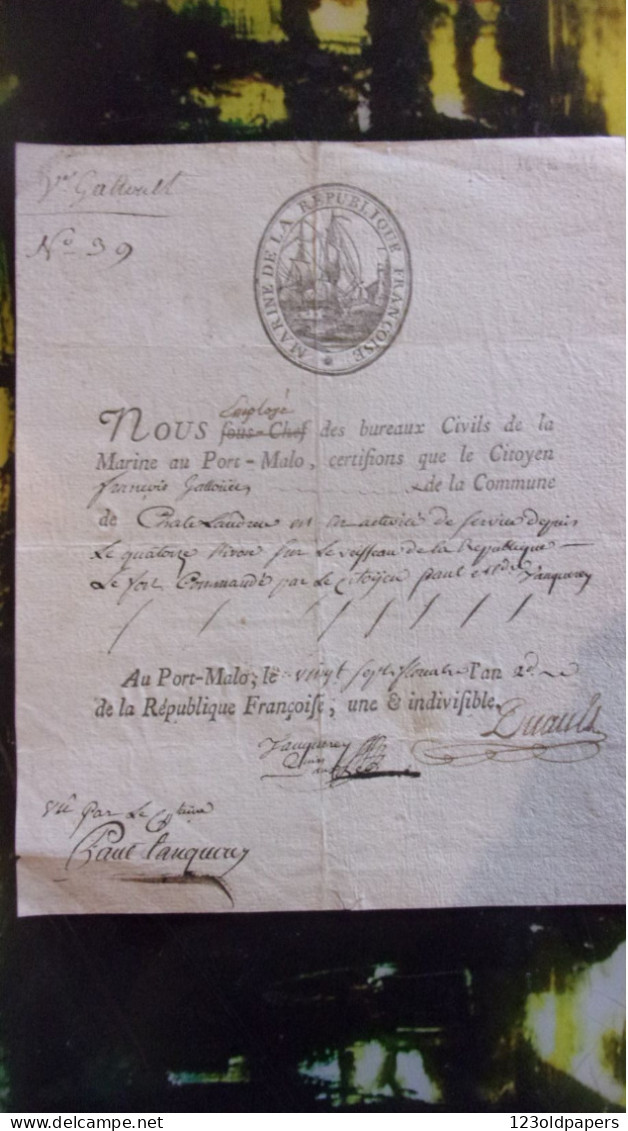 N.o 39
MARINE DE LA REPUBLIQUE FRANÇOISE
Employé
NOUS sous-Chef des bureaux Civils de la
Marine au Port-Malo, certifions que le Citoyen
françois de la Commune
de est en activité de service depuis
Le quatorze sur Le vaisseau de la Republique
Le fort Commandé par Le Citoyen paul Tanquerey
Au Port-Malo, le vingt sept l'an 2.d
de la République Françoise, une & indivisible.
Duault
Tanquerey
Vû par Le
Paul Tanquerey
123oldpapers